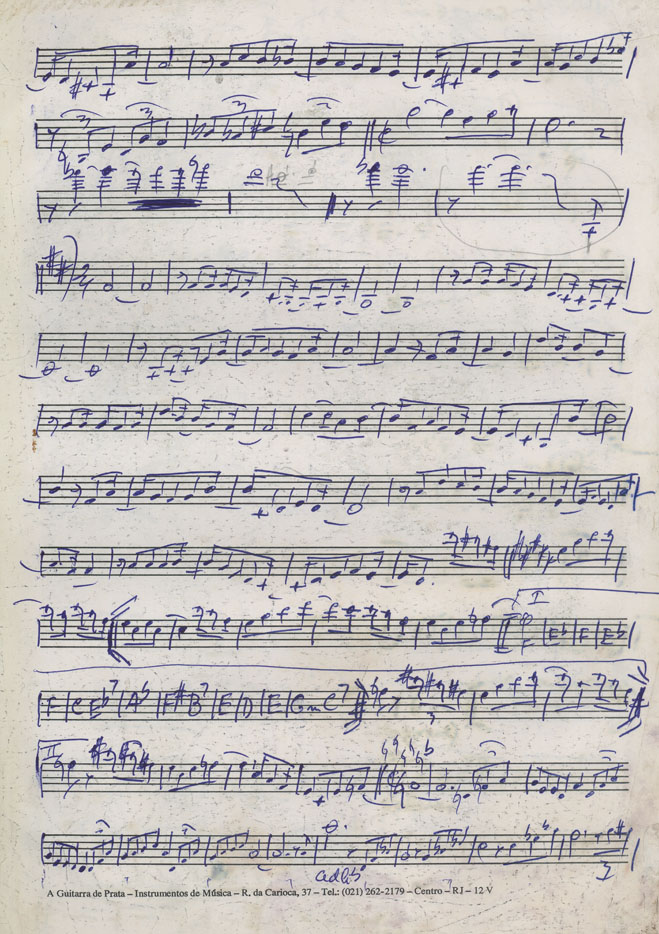 3 3 3
I
F E♭ F E♭
F C E♭7 A♭ F# B7 E D E Gm C7
3
II
ad lib
3
A Guitarra de Prata – Instrumentos de Música – R. da Carioca, 37 – Tel.: (021) 262-2179 – Centro – RJ – 12 V